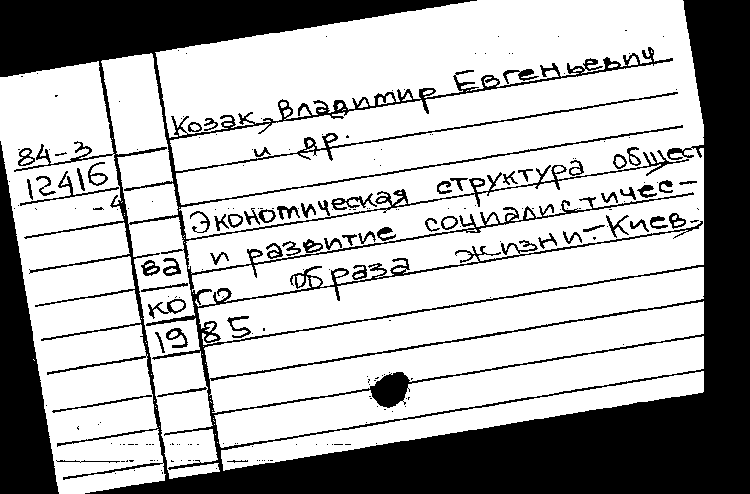 Козак, Владимир Евгеньевич
и др.
84-3
12416
-4
Экономическая структура общест
ва и развитие социалистичес-
кого образа жизни.-Киев,
1985.